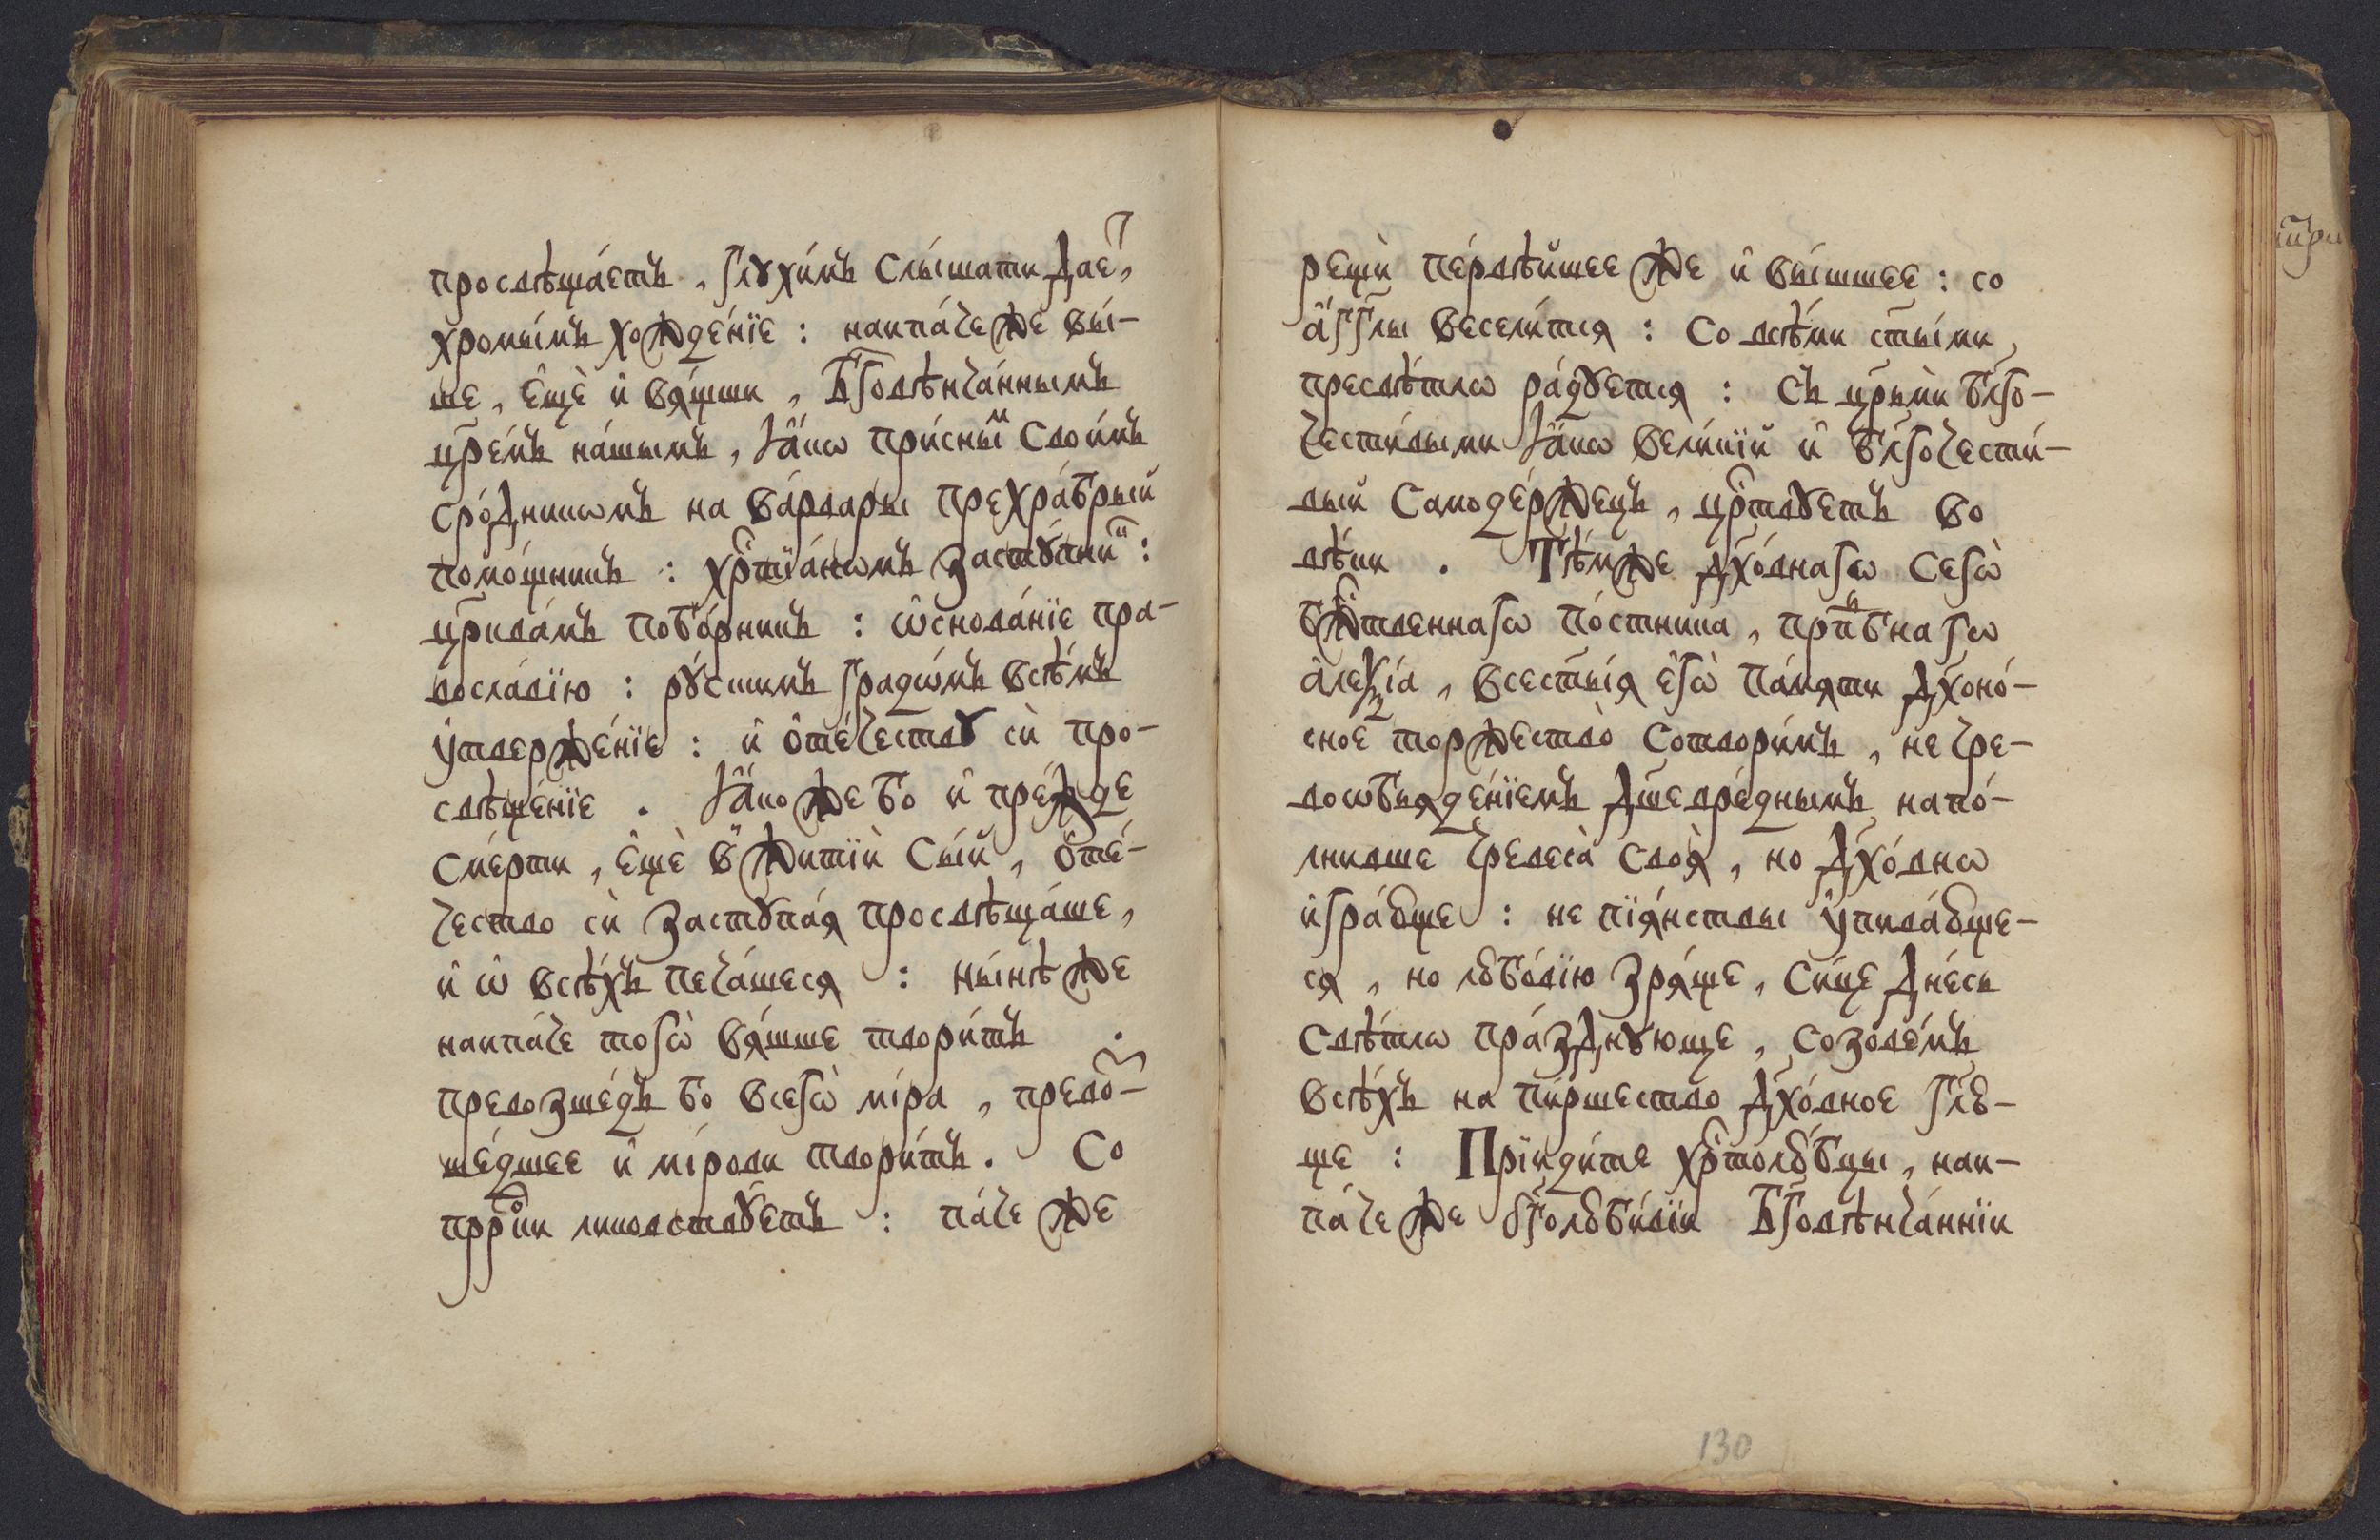 просвѣща́етъ, глꙋхи́мъ слы́шати дае́т,
хромы́мъ хожде́нїе : наипа́че же вы́-
ше, є҆щѐ и҆ вѧ́щши, бг҃овѣнча́ннымъ
цр҃е́мъ на́шымъ, ꙗ҆́кѡ при́сным свои́мъ
сро́дникѡмъ на ва́рвары прехра́брый
помо́щникъ : хрⷭ҇тїа́нѡмъ застꙋ́пникъ :
цр҃ква́мъ побо́рникъ : ѡ҆снова́нїе пра-
восла́вїю : рꙋ́скимъ градѡ́мъ всѣ́мъ
ᲂу҆твержє́нїе : и҆ ѻ҆те́чествꙋ сѝ про-
свѣще́нїе . ꙗ҆́коже бо и҆ пре́жде
сме́рти, є҆щѐ в житїѝ сы́й, ѻ҆те́-
чество сѝ застꙋпа́ѧ просвѣща́ше,
и҆ ѡ҆ всѣ́хъ печа́шесѧ : ны́нѣ же
наипа́че тогѡ̀ вѧ́щше твори́тъ .
превозше́дъ бо всегѡ̀ мі́ра, прево-
ше́дшее и҆ мі́рови твори́тъ. Со
прⷪ҇рки ликовствꙋ́етъ : па́че же
рещѝ пе́рвѣйшее же и҆ вы́шшее : со
а҆́гг҃лы весели́тсѧ : со всѣ́ми ст҃ы́ми,
пресвѣ́тлѡ ра́дꙋетсѧ : съ цр҃ьмѝ бл҃го-
чести́выми ꙗ҆́кѡ вели́кїй и҆ бл҃гочести́-
вый самоде́ржецъ, црⷭ҇твꙋетъ во
вѣ́ки . Тѣ́мже дх҃о́внагѡ сегѡ̀
бжⷭ҇твеннагѡ по́стника, прпⷣбнагѡ
а҆леѯі́а, всест҃ы́ѧ є҆гѡ̀ па́мѧти дх҃оно́-
сное торжество̀ сотвори́мъ, не чре-
воѡб̾ѧде́нїемъ дш҃евре́днымъ напо́-
лнивше чревеса̀ своѧ̀, но дх҃о́внѡ
и҆гра́юще : не пїѧ́нствы ᲂу҆пива́юще-
сѧ, но любо́вїю зрѧ́ще, си́це дне́сь
свѣ́тлѡ пра́зднꙋюще, созове́мъ
всѣ́хъ на пи́ршество дх҃о́вное гл҃ю-
ще : Прїиди́те хрⷭ҇толю́бцы, наи-
па́че же бг҃олюби́вїи бг҃овѣнча́ннїи
130